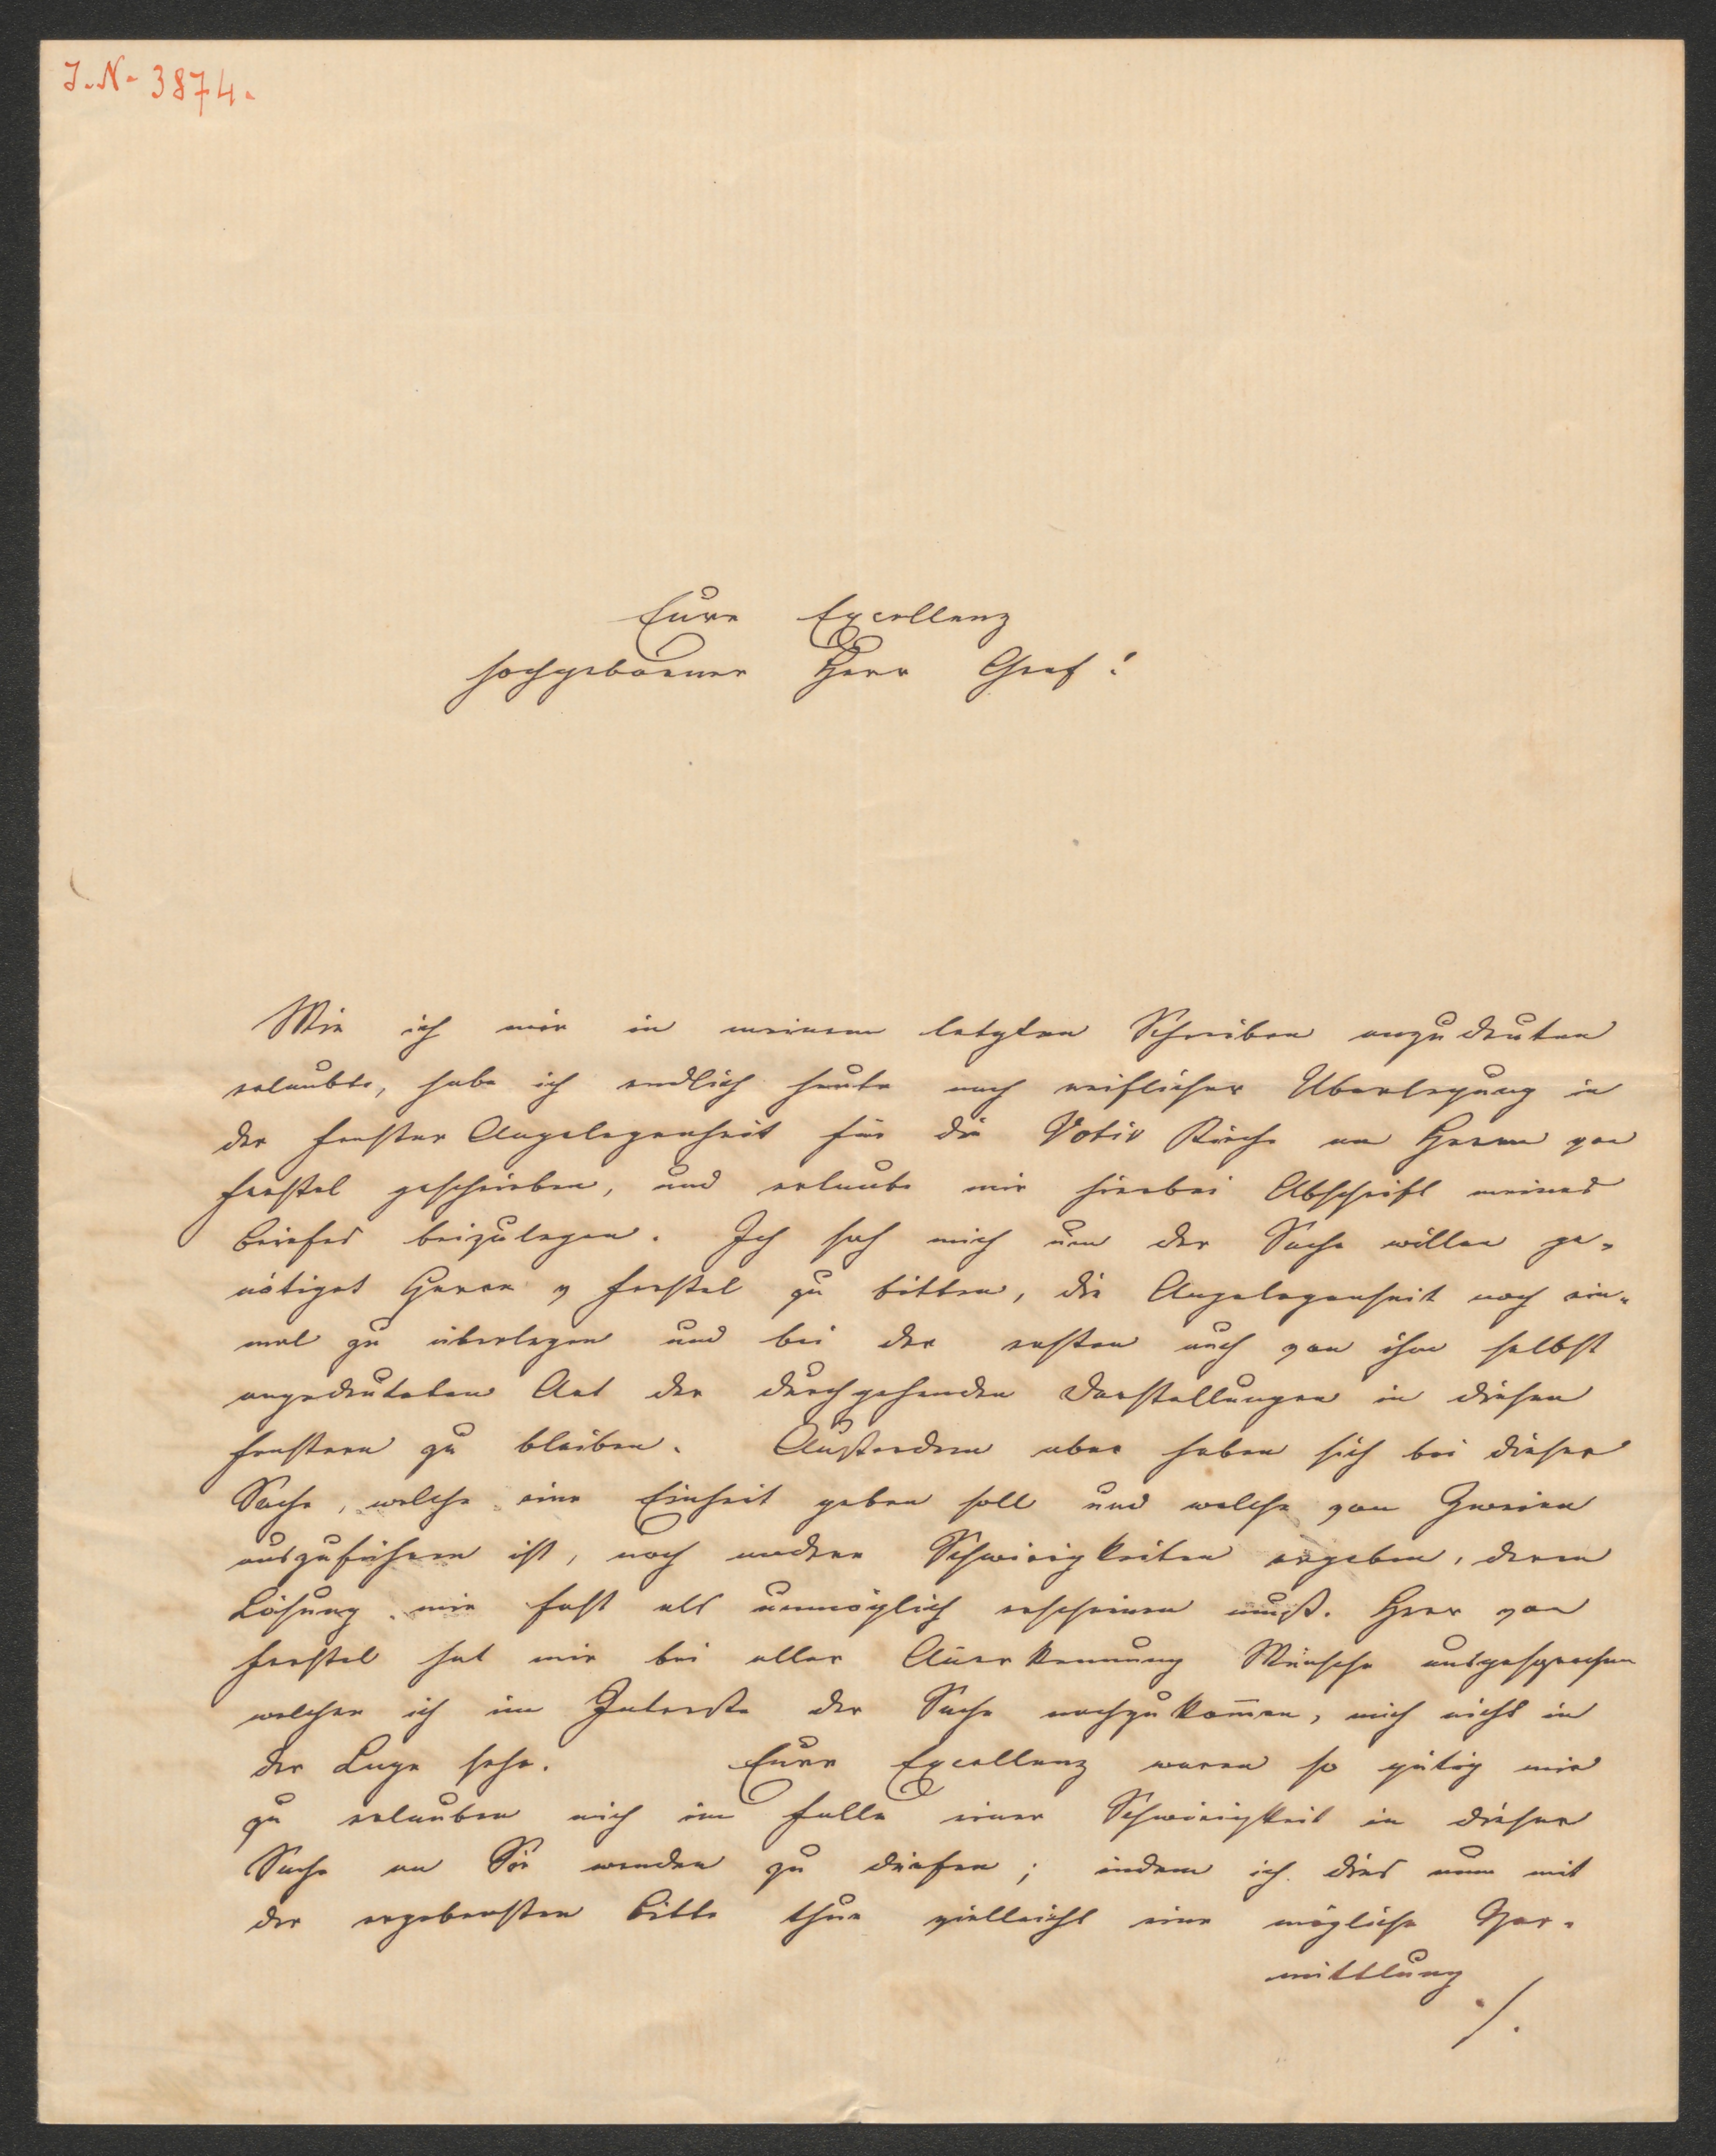 J.N. 3874.
Eure Excellenz
hochgeborner Herr Graf!
Wie ich mir in meinem letzten Schreiben anzudeuten
erlaubte, habe ich endlich heute nach reiflicher Überlegung in
der Fenster Angelegenheit für die Votiv Kirche an Herrn von
Ferstel geschrieben, und erlaube mir hierbei Abschrift meines
Briefes beizulegen. Ich sah mich um der Sache willen ge-
nötiget Herrn v Ferstel zu bitten, die Angelegenheit noch ein-
mal zu überlegen und bei der ersten auch von ihm selbst
angedeuteten Art der durchgehenden Darstellungen in diesen
Fenstern zu bleiben. Außerdem aber haben sich bei dieser
Sache, welche eine Einheit geben soll und welche von Zweien
auszuführen ist, noch andere Schwirigkeiten ergeben, deren
Lösung mir fast als unmöglich erscheinen muß. Herr von
Ferstel hat mir bei aller Anerkennung Wünsche ausgesprochen
welchen ich im Interesse der Sache nachzukom̅en, mich nicht in
der Lage sehe. Eure Excellenz waren so gütig mir
zu erlauben mich im Falle einer Schwirigkeit in dieser
Sache an Sie wenden zu dürfen; indem ich dies nun mit
der ergebensten Bitte thue vielleicht eine mögliche Ver-
mittlung
./.